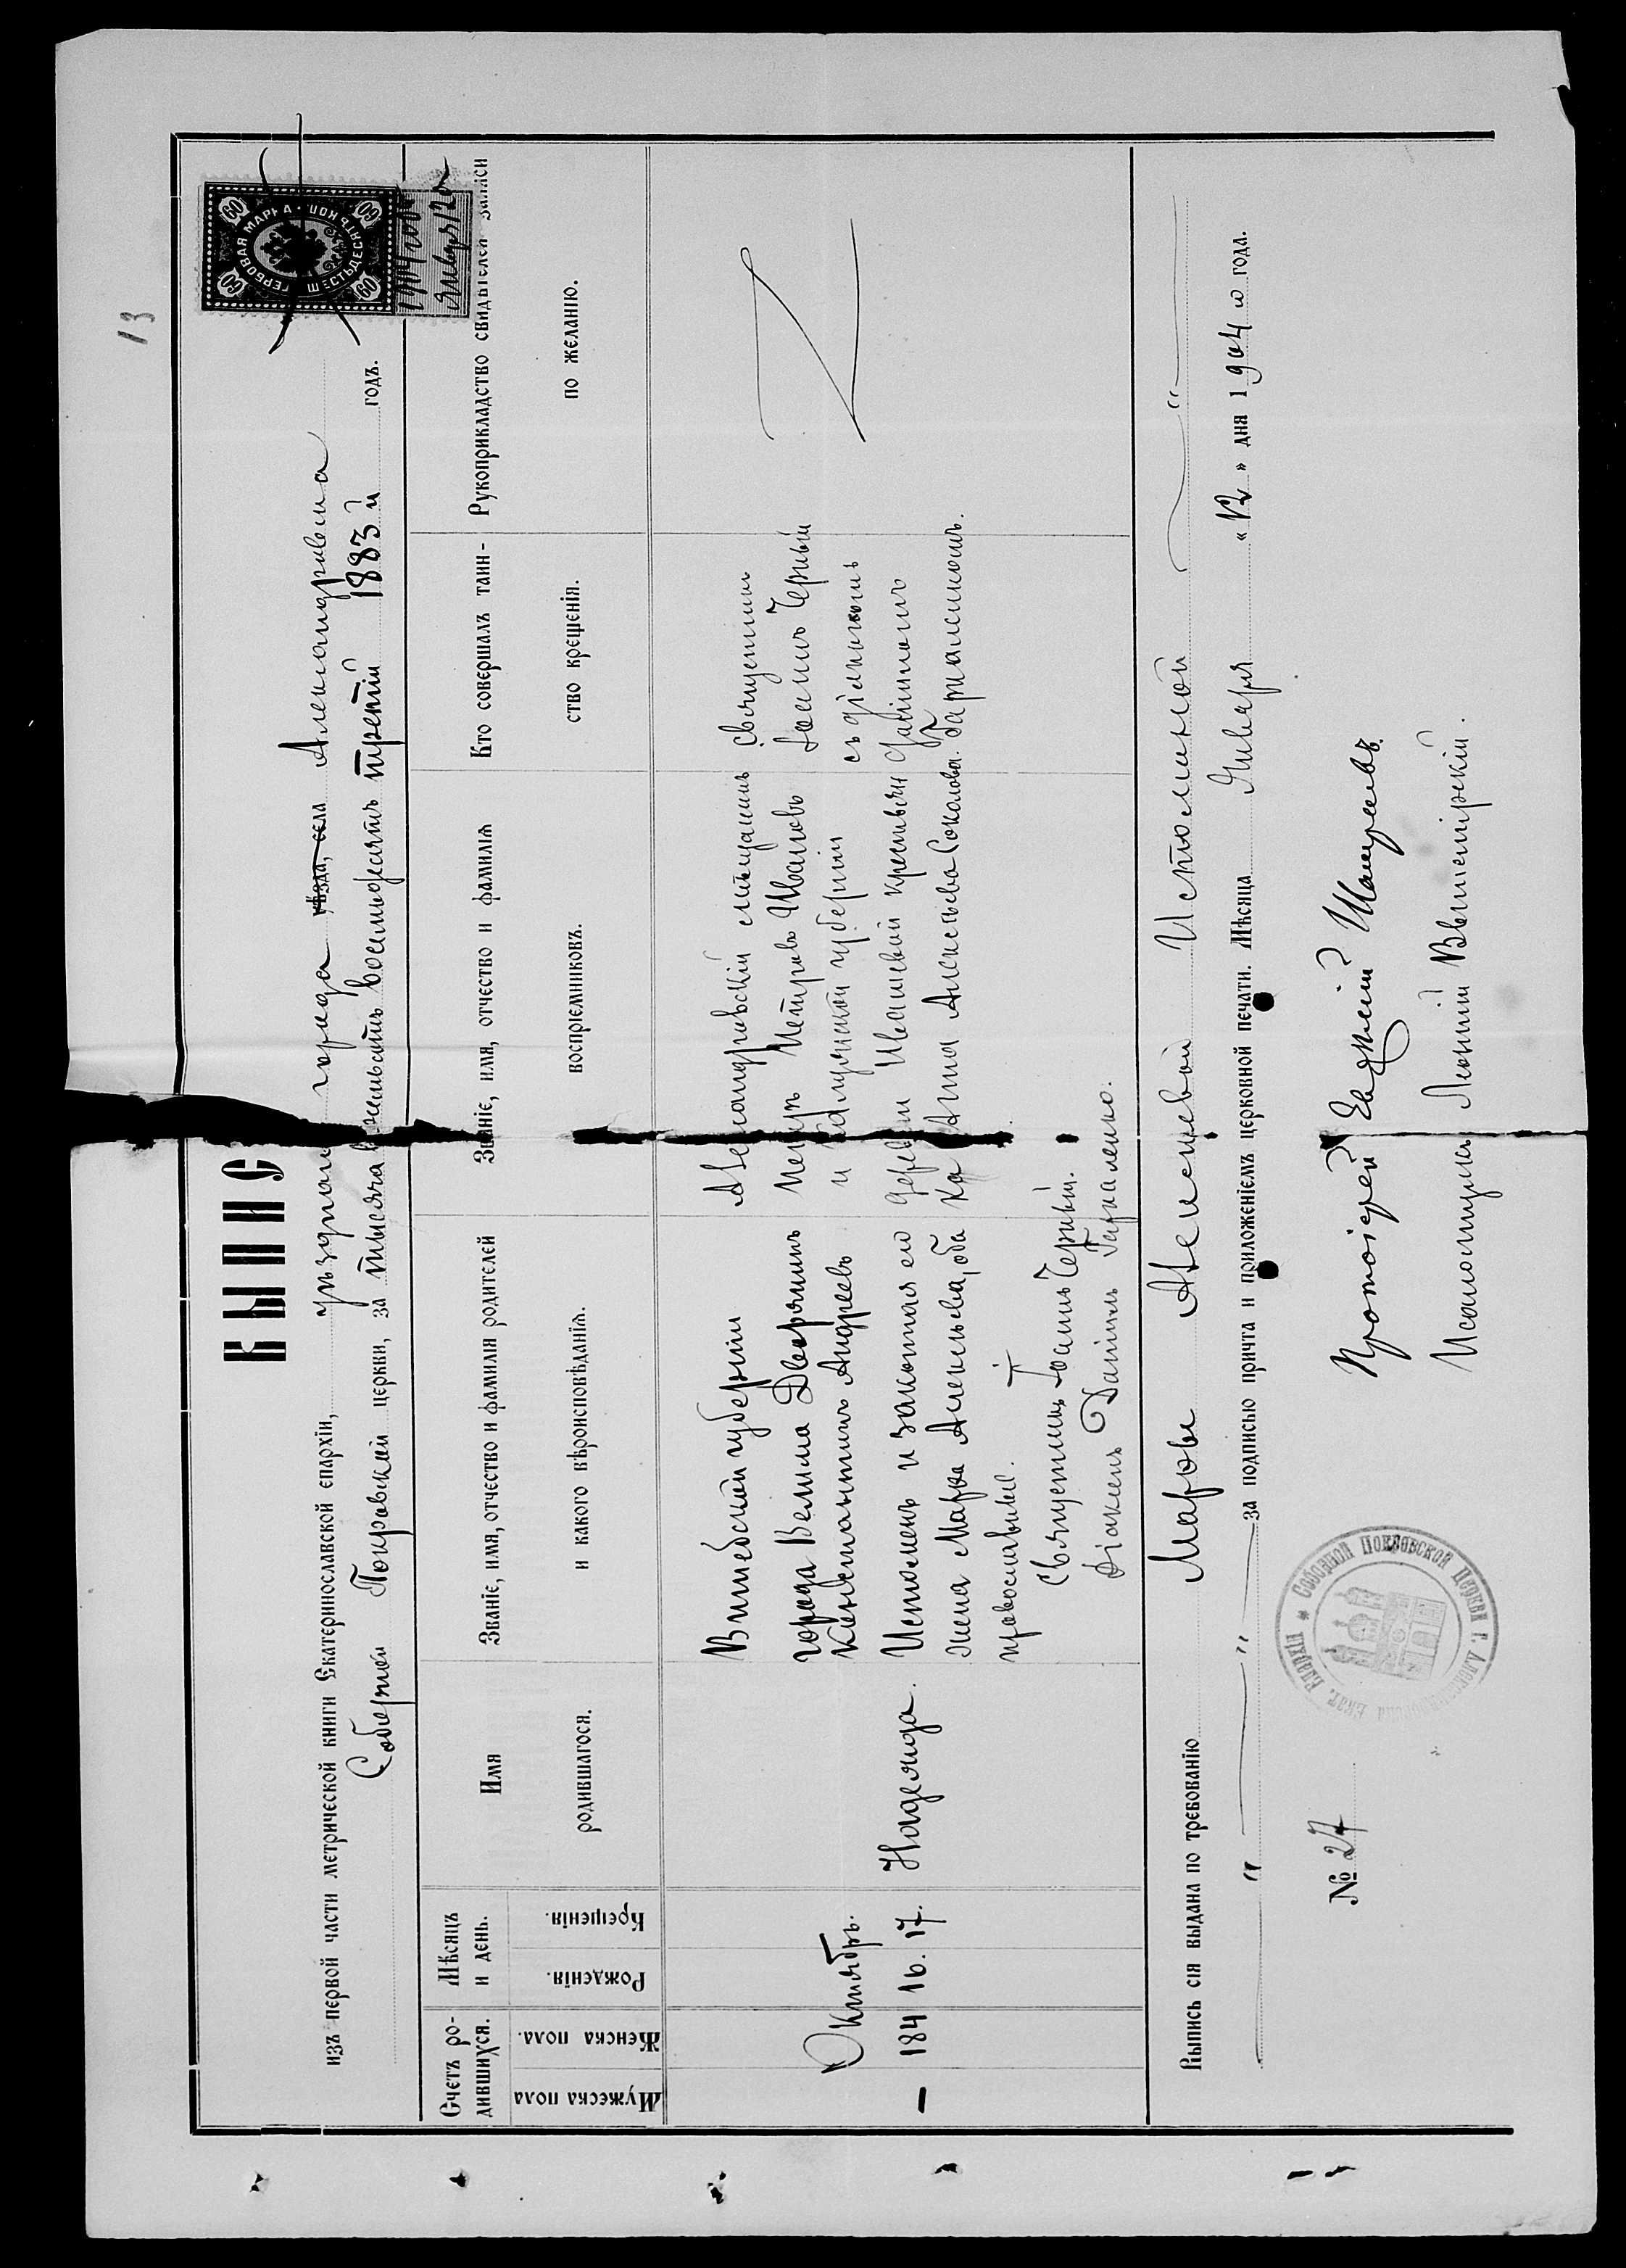 13
ВЫПИС
изъ первой части метрической книги Екатеринославской епархіи, уѣзднаго города уѣзда, села Александровска
Соборной Покровской церкви, за тысяча восемьсотъ восемьдесятъ третій 1883й годъ.
ГЕРБОВАЯ МАРКА
ШЕСТЬДЕСЯТЪ КОП.
60 60 60 60
1904 года
Января 12 д
Счетъ родившихся.
Мужеска пола
Женска пола.
Мѣсяцъ и день.
Рожденія.
Крещенія.
Имя
родившагося.
Званіе, имя, отчество и фамилія родителей
и какого вѣроисповѣданія.
Званіе, имя, отчество и фамилія
воспріемниковъ.
Кто совершалъ таин-
ство крещенія.
Рукоприкладство свидѣтелей записи
по желанію.
Октябрь.
— 184 16. 17.
Надежда.
Витебской губерніи
города Велижа Дворянинъ
Константинъ Андреевъ
Истоменъ и законная его
жена Марфа Алексѣева, оба
православные.
Александровскій мѣщанинъ
Петръ Петровъ Ивановъ
и Калужской губерніи
деревни Ивашевой крестьян
ка Анна Алексѣева Соколова.
Священникъ
Іоаннъ Черный
съ діакономъ
Даніиломъ
Гаркаленкомъ.
Священникъ Іоаннъ Черный.
Діаконъ Даніилъ Гаркаленко.
Выпись сія выдана по требованію Марфы Алексѣевой Истоминой
за подписью причта и приложеніемъ церковной печати. Мѣсяца Января «12» дня 1904 го года.
№ 27
Соборной Покровской Церкви г. Александровска Екат. Епархіи
Протоіерей Евгеній
Псаломщикъ Леонтій